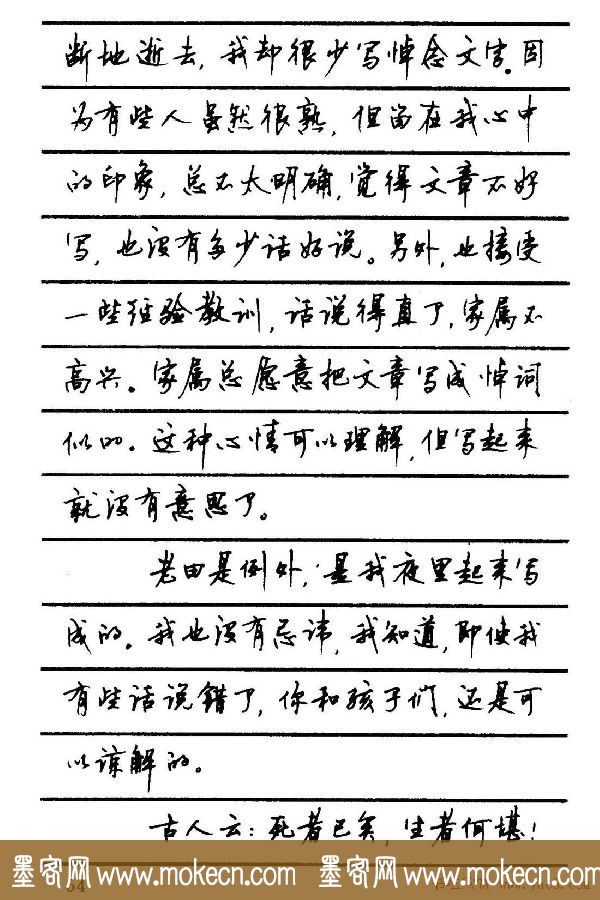 断地逝去，我却很少写悼念文字。因
为有些人虽然很熟，但留在我心中
的印象，总不太明确，觉得文章不好
写，也没有多少话好说。另外，也接受
一些经验教训，话说得真了，家属不
高兴。家属总愿意把文章写成悼词
似的。这种心情可以理解，但写起来
就没有意思了。
老田是例外，是我夜里起来写
成的。我也没有忌讳，我知道，即使我
有些话说错了，你和孩子们，还是可
以谅解的。
古人云：死者已矣，生者何堪！
54
墨客网 www.mokecn.com 墨客网 www.mokecn.com